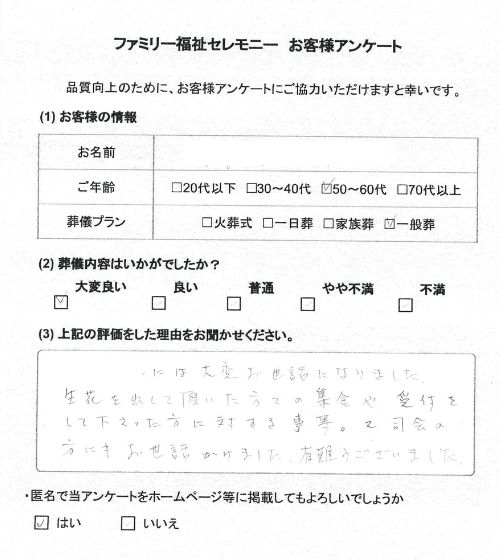 ファミリー福祉セレモニー お客様アンケート
品質向上のために、お客様アンケートにご協力いただけますと幸いです。
(1) お客様の情報
お名前
ご年齢 □20代以下 □30～40代 ☑50～60代 □70代以上
葬儀プラン □火葬式 □一日葬 □家族葬 ☑一般葬
(2) 葬儀内容はいかがでしたか？
大変良い 良い 普通 やや不満 不満
☑ □ □ □ □
(3) 上記の評価をした理由をお聞かせください。
には大変お世話になりました
生花を出して頂いた方々の集金や受付を
して下さった方に対する事等。又司会の
方にもお世話かけました。有難うございました。
・匿名で当アンケートをホームページ等に掲載してもよろしいでしょうか
☑ はい □ いいえ